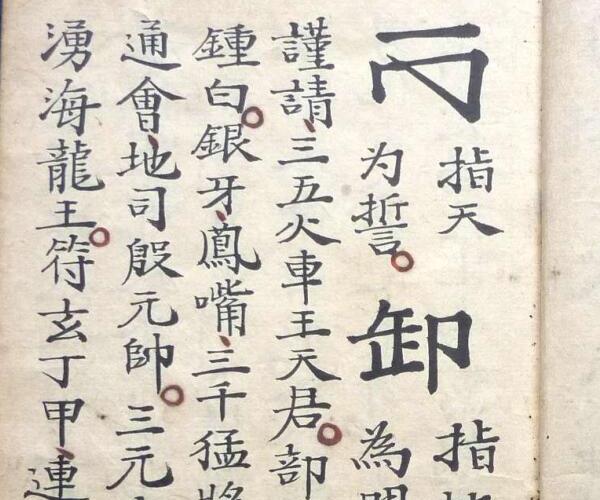 指天
为誓。
卸
指
為
謹請、三五火車王天君。部
鍾白。銀牙、鳳嘴、三千猛將
通會、地司殷元帥。三元
湧海龍王。符玄丁甲、連